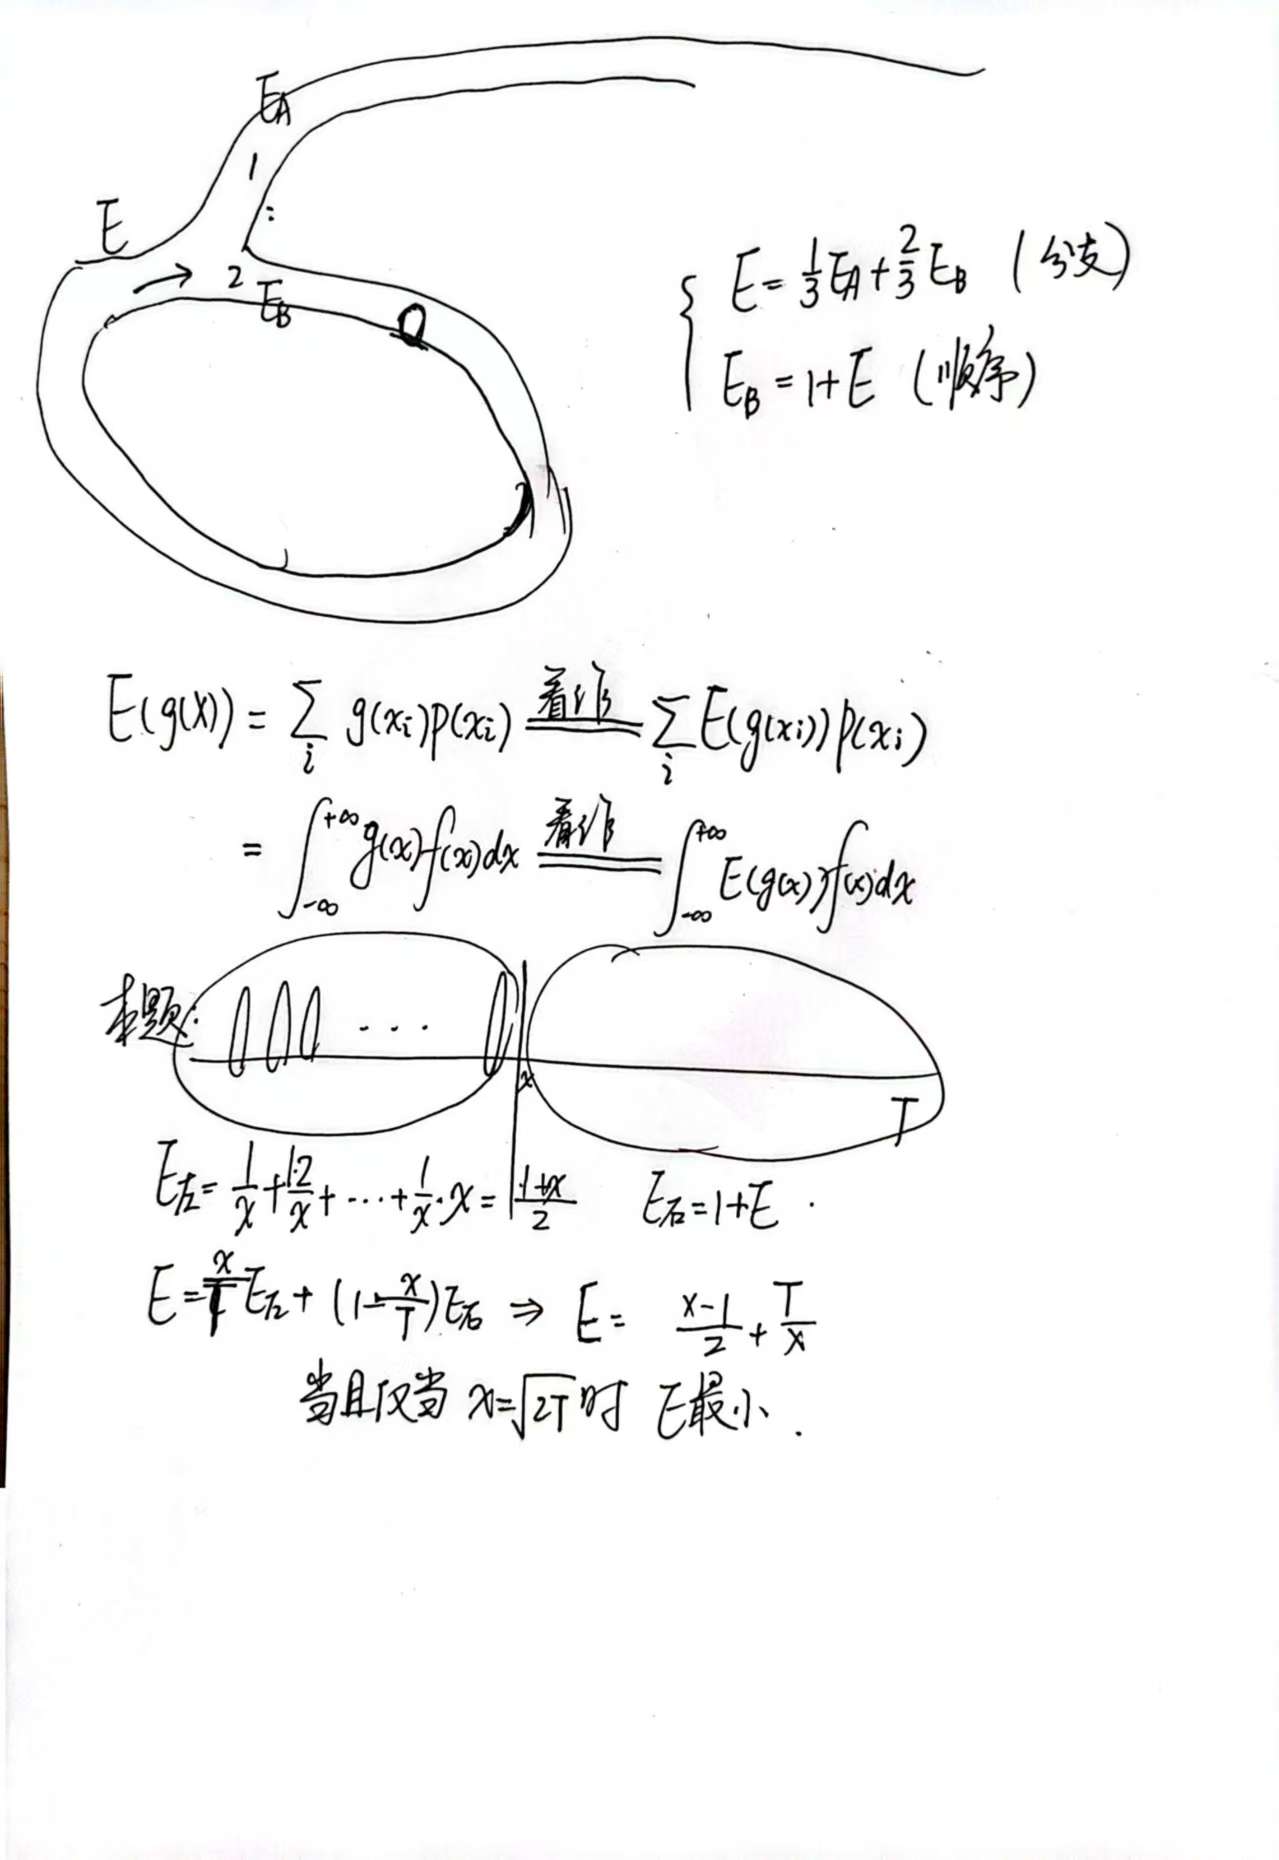 E_A
1
:
E
→ 2
E_B
{ E = 1/3 E_A + 2/3 E_B (分支)
E_B = 1+E (顺序)
E(g(X)) = ∑_i g(x_i)p(x_i) 看作 ∑_i E(g(x_i))p(x_i)
= ∫_{-∞}^{+∞} g(x)f(x)dx 看作 ∫_{-∞}^{+∞} E(g(x))f(x)dx
本题:
...
x
T
E左 = 1/x + 1·2/x + ... + 1/x·x = (1+x)/2 E右 = 1+E
E = x/T E左 + (1-x/T)E右 ⇒ E = (x-1)/2 + T/x
当且仅当 x=√2T 时 E最小.